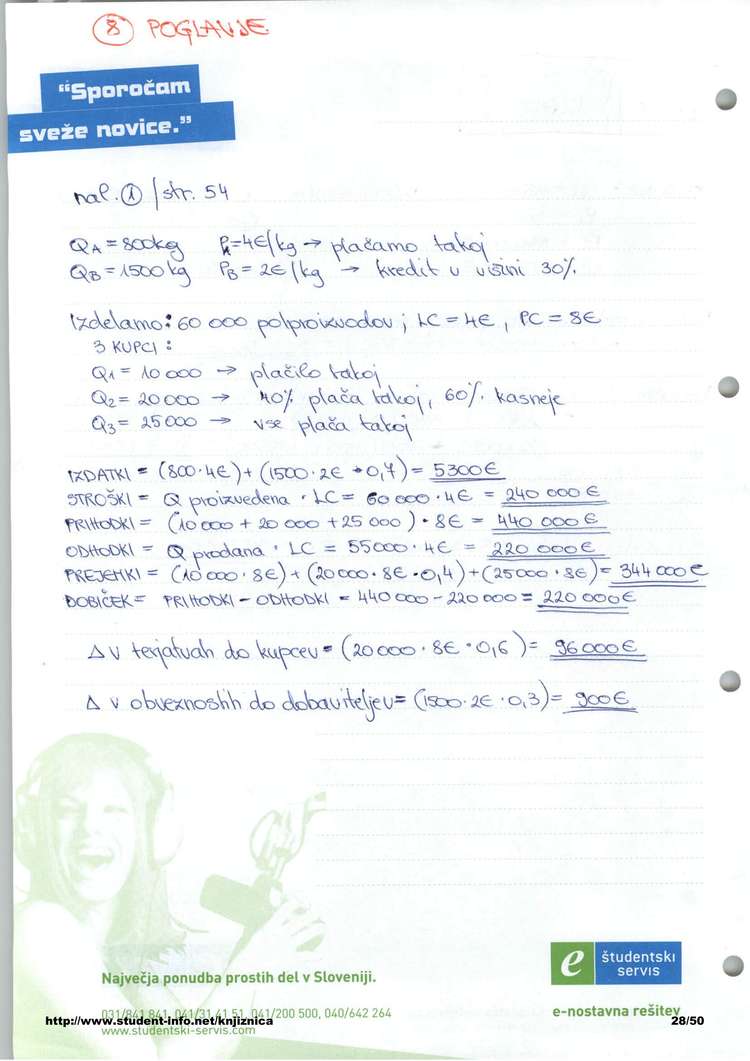 8 POGLAVJE
“Sporočam
sveže novice.”
nal. 1 / str. 54
QA = 800kg PA=4€/kg → plačamo takoj
QB = 1500 kg PB = 2€/kg → kredit v višini 30%
Izdelamo: 60 000 polproizvodov ; LC = 4€ , PC = 8€
3 KUPCI :
Q1 = 10 000 → plačilo takoj
Q2 = 20 000 → 40% plača takoj, 60% kasneje
Q3 = 25 000 → vse plača takoj
IZDATKI = (800·4€)+(1500·2€·0,7) = 5300€
STROŠKI = Q proizvedena · LC = 60 000 · 4€ = 240 000€
PRIHODKI = (10 000 + 20 000 + 25 000 ) · 8€ = 440 000€
ODHODKI = Q prodana · LC = 55000 · 4€ = 220 000€
PREJEMKI = (10 000 · 8€) + (20 000 · 8€ · 0,4) + (25 000 · 8€) = 344 000€
DOBIČEK = PRIHODKI – ODHODKI = 440 000 – 220 000 = 220 000€
Δ v terjatvah do kupcev = (20 000 · 8€ · 0,6 ) = 96 000€
Δ v obveznostih do dobaviteljev = (1500 · 2€ · 0,3) = 900€
e študentski
servis
Največja ponudba prostih del v Sloveniji.
031/841 841, 041/31 41 51, 041/200 500, 040/642 264
e-nostavna rešitev
http://www.student-info.net/knjiznica 28/50
www.studentski-servis.com